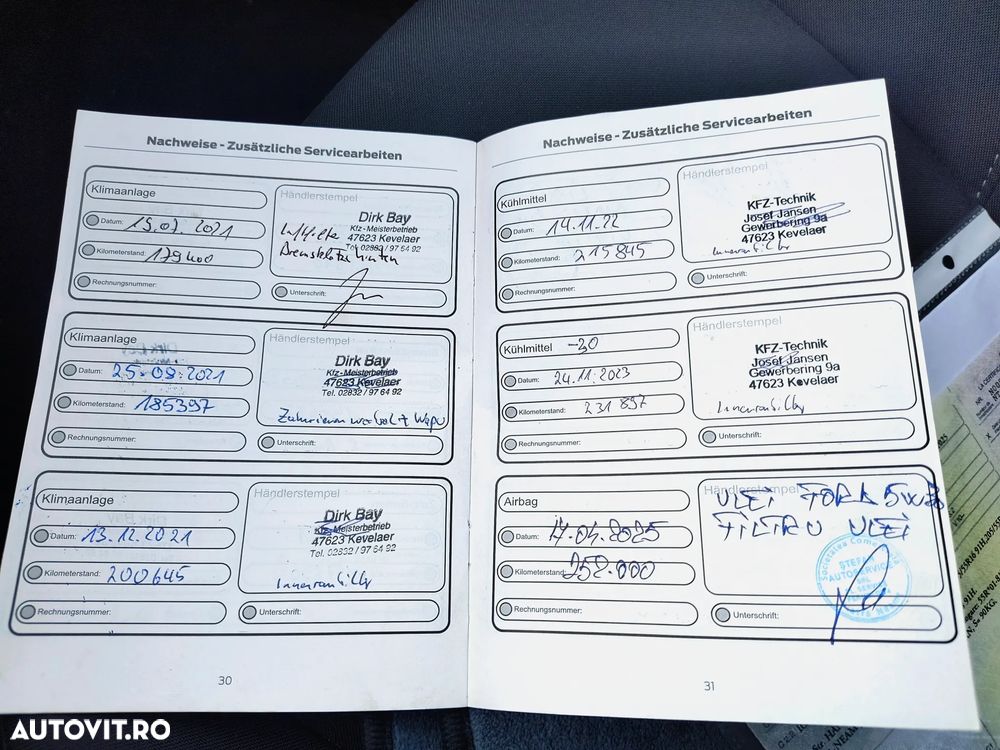 Nachweise - Zusätzliche Servicearbeiten
Klimaanlage
Händlerstempel
Datum: 19.07.2021
Dirk Bay
Kfz-Meisterbetrieb
47623 Kevelaer
Tel. 02832 / 97 64 92
Kilometerstand: 179400
Bremsklötze hinten
Rechnungsnummer:
Unterschrift:
Klimaanlage
Händlerstempel
Datum: 25.08.2021
Dirk Bay
Kfz-Meisterbetrieb
47623 Kevelaer
Tel. 02832 / 97 64 92
Kilometerstand: 185397
Zahnriemenwechsel + Wapu
Rechnungsnummer:
Unterschrift:
Klimaanlage
Händlerstempel
Datum: 13.12.2021
Dirk Bay
Kfz-Meisterbetrieb
47623 Kevelaer
Tel. 02832 / 97 64 92
Kilometerstand: 200645
Rechnungsnummer:
Unterschrift:
30
Nachweise - Zusätzliche Servicearbeiten
Kühlmittel
Händlerstempel
Datum: 14.11.22
KFZ-Technik
Josef Jansen
Gewerbering 9a
47623 Kevelaer
Kilometerstand: 215845
Rechnungsnummer:
Unterschrift:
Kühlmittel -30
Händlerstempel
Datum: 24.11.2023
KFZ-Technik
Josef Jansen
Gewerbering 9a
47623 Kevelaer
Kilometerstand: 231897
Rechnungsnummer:
Unterschrift:
Airbag
Händlerstempel
ULEI FORD 5W30
FILTRU ULEI
Datum: 17.04.2025
Kilometerstand: 258.000
AUTOSERVICE
Rechnungsnummer:
Unterschrift:
31
AUTOVIT.RO